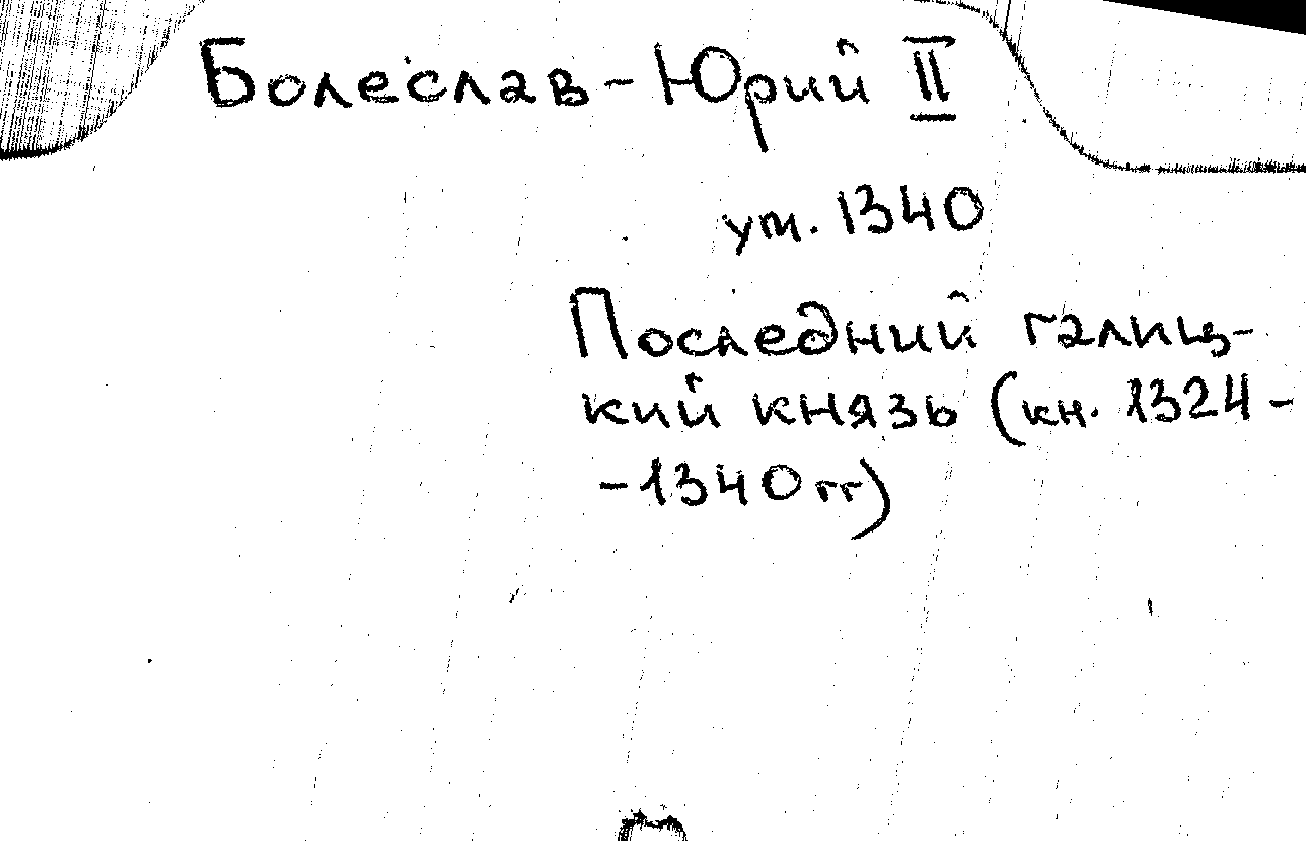 Болеслав-Юрий II
ум. 1340
Последний галиц-
кий князь (кн. 1324-
-1340 гг)